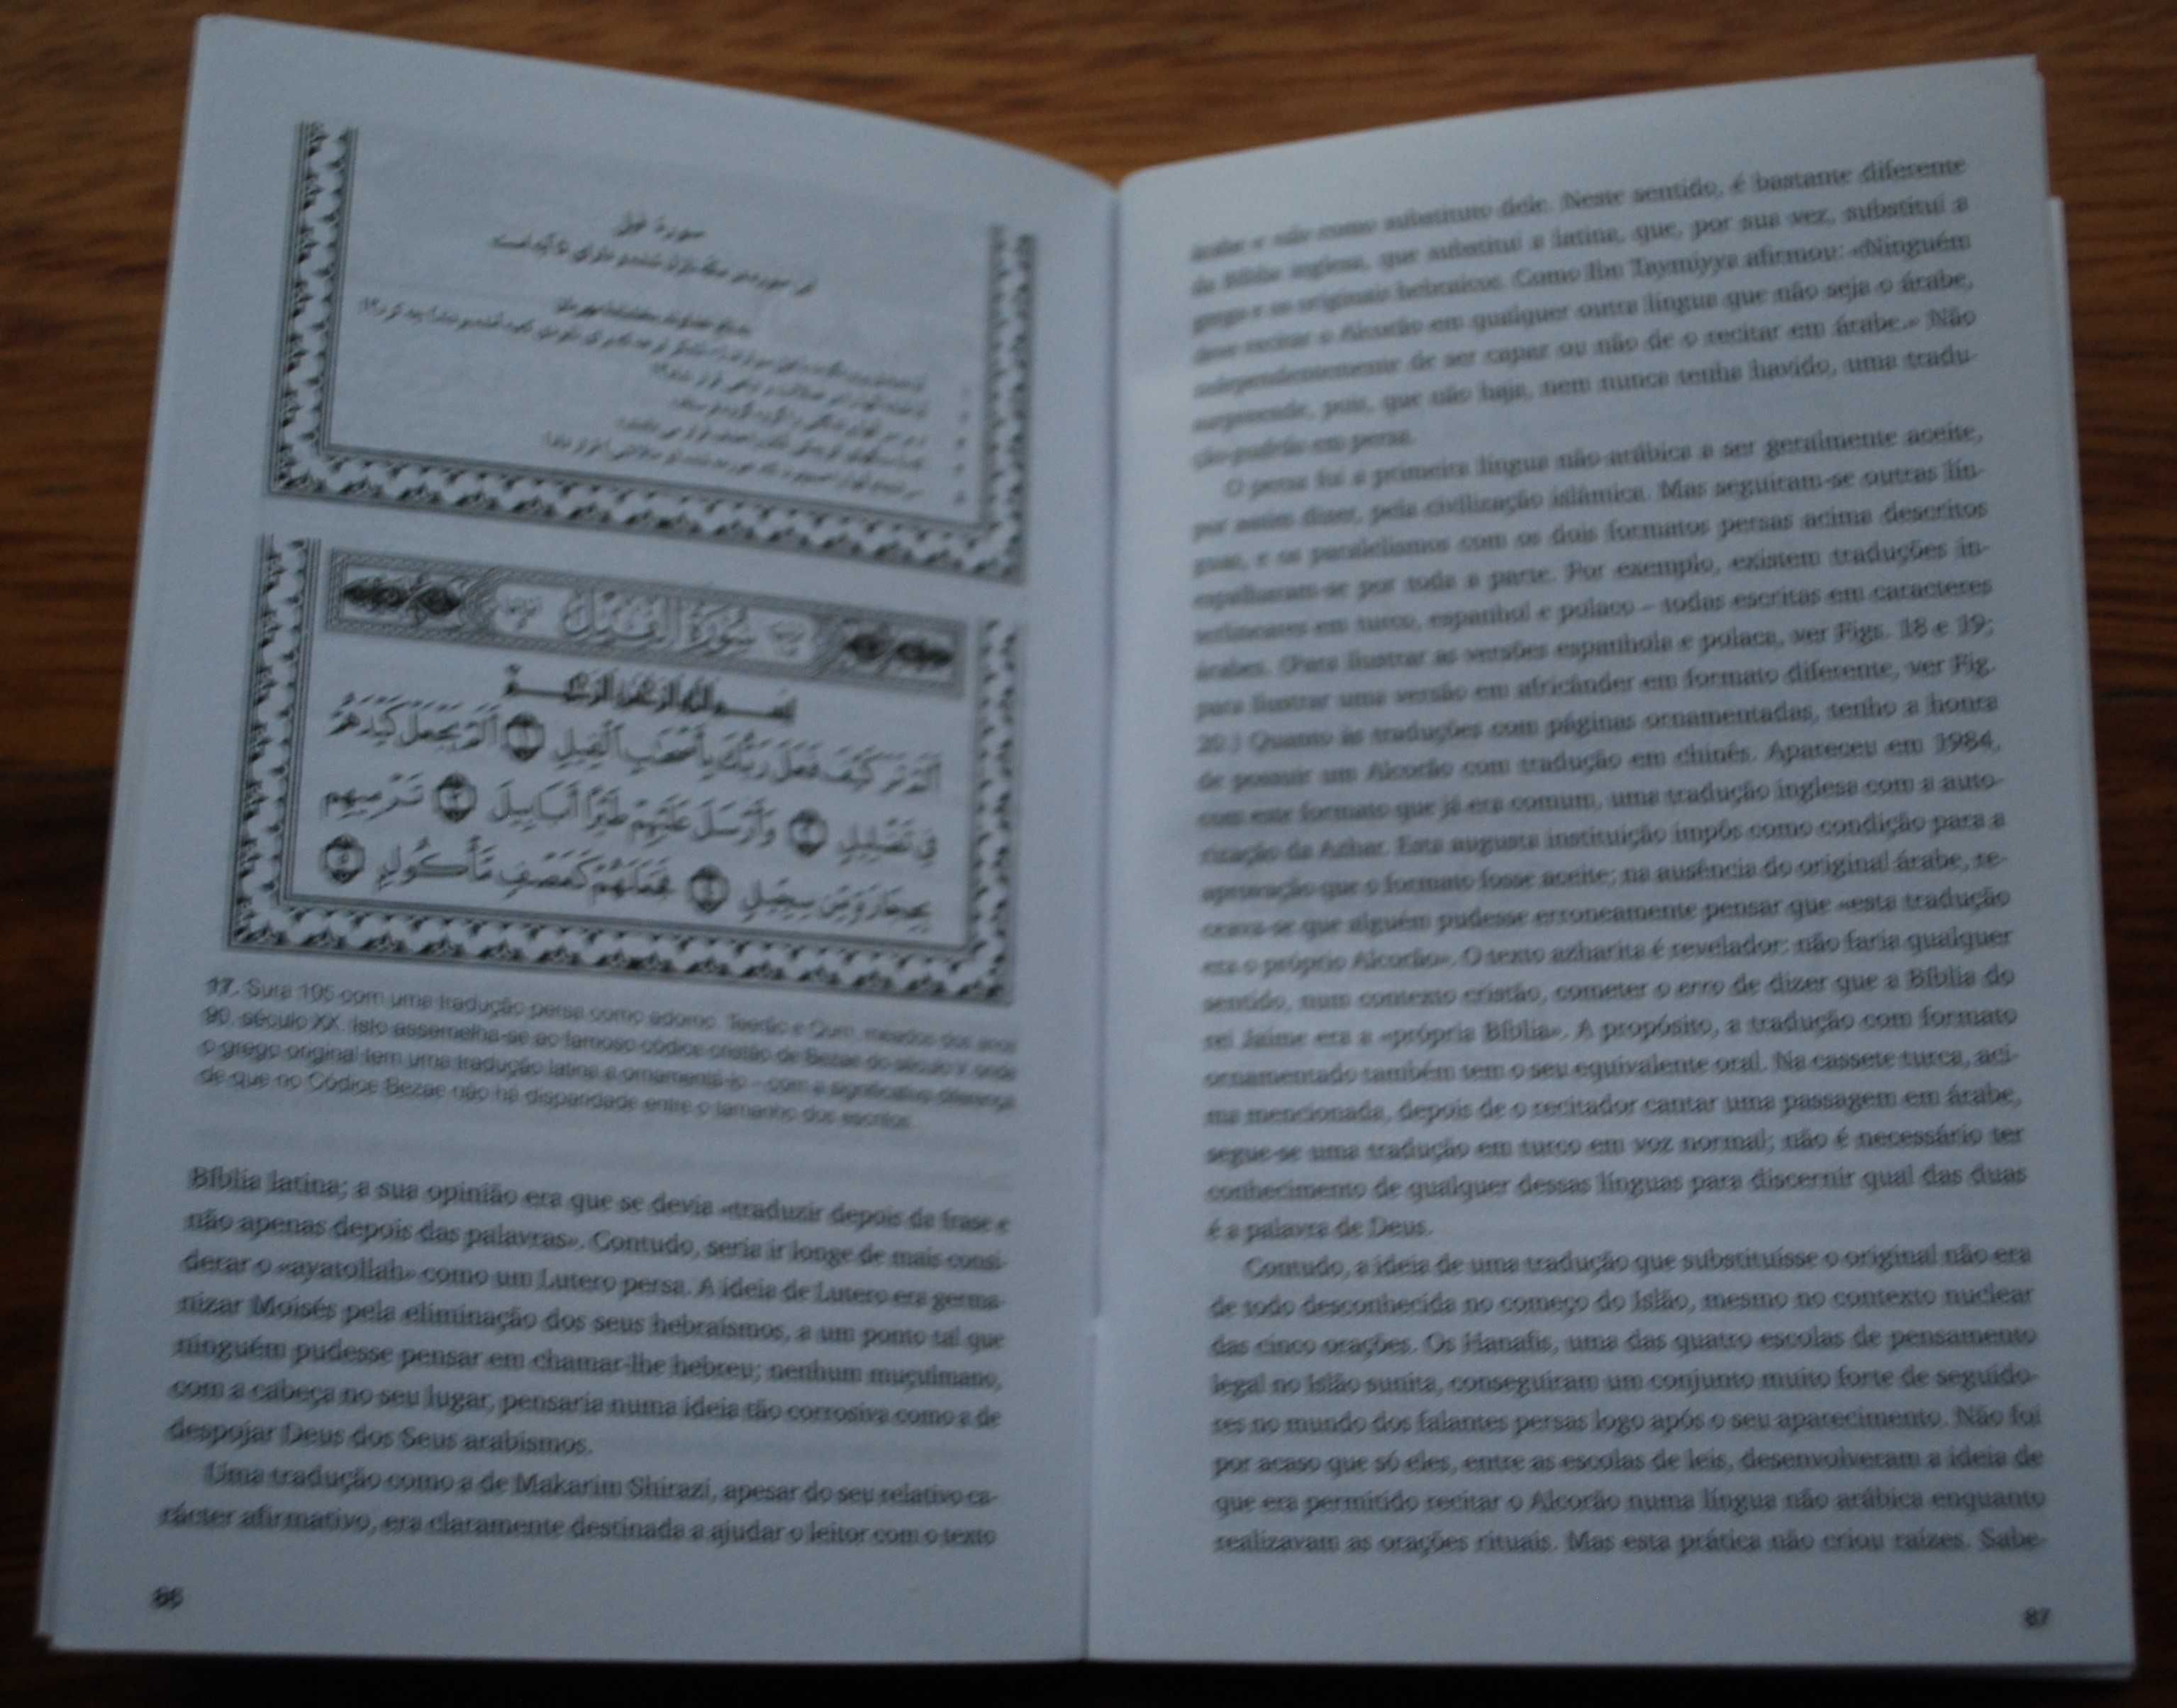 سورة فيل
سورة الفيل
بسم الله الرحمن الرحيم
أَلَمْ تَرَ كَيْفَ فَعَلَ رَبُّكَ بِأَصْحَٰبِ ٱلْفِيلِ ١ أَلَمْ يَجْعَلْ كَيْدَهُمْ
فِى تَضْلِيلٍ ٢ وَأَرْسَلَ عَلَيْهِمْ طَيْرًا أَبَابِيلَ ٣ تَرْمِيهِم
بِحِجَارَةٍ مِّن سِجِّيلٍ ٤ فَجَعَلَهُمْ كَعَصْفٍ مَّأْكُولٍ ٥
17. Sura 105 com uma tradução persa como adorno. Teerão e Qum, meados dos anos
90, século XX. Isto assemelha-se ao famoso códice cristão de Bezae do século V, onde
o grego original tem uma tradução latina a ornamentá-lo – com a significativa diferença
de que no Códice Bezae não há disparidade entre o tamanho dos escritos.
Bíblia latina; a sua opinião era que se devia «traduzir depois da frase e
não apenas depois das palavras». Contudo, seria ir longe de mais consi-
derar o «ayatollah» como um Lutero persa. A ideia de Lutero era germa-
nizar Moisés pela eliminação dos seus hebraísmos, a um ponto tal que
ninguém pudesse pensar em chamar-lhe hebreu; nenhum muçulmano,
com a cabeça no seu lugar, pensaria numa ideia tão corrosiva como a de
despojar Deus dos Seus arabismos.
Uma tradução como a de Makarim Shirazi, apesar do seu relativo ca-
rácter afirmativo, era claramente destinada a ajudar o leitor com o texto
86
árabe e não como substituto dele. Neste sentido, é bastante diferente
da Bíblia inglesa, que substitui a latina, que, por sua vez, substitui a
grega e os originais hebraicos. Como Ibn Taymiyya afirmou: «Ninguém
deve recitar o Alcorão em qualquer outra língua que não seja o árabe,
independentemente de ser capaz ou não de o recitar em árabe.» Não
surpreende, pois, que não haja, nem nunca tenha havido, uma tradu-
ção-padrão em persa.
O persa foi a primeira língua não-arábica a ser geralmente aceite,
por assim dizer, pela civilização islâmica. Mas seguiram-se outras lín-
guas, e os paralelismos com os dois formatos persas acima descritos
espalharam-se por toda a parte. Por exemplo, existem traduções in-
terlineares em turco, espanhol e polaco – todas escritas em caracteres
árabes. (Para ilustrar as versões espanhola e polaca, ver Figs. 18 e 19;
para ilustrar uma versão em africânder em formato diferente, ver Fig.
20.) Quanto às traduções com páginas ornamentadas, tenho a honra
de possuir um Alcorão com tradução em chinês. Apareceu em 1984,
com este formato que já era comum, uma tradução inglesa com a auto-
rização da Azhar. Esta augusta instituição impôs como condição para a
aprovação que o formato fosse aceite; na ausência do original árabe, re-
ceava-se que alguém pudesse erroneamente pensar que «esta tradução
era o próprio Alcorão». O texto azharita é revelador: não faria qualquer
sentido, num contexto cristão, cometer o erro de dizer que a Bíblia do
rei Jaime era a «própria Bíblia». A propósito, a tradução com formato
ornamentado também tem o seu equivalente oral. Na cassete turca, aci-
ma mencionada, depois de o recitador cantar uma passagem em árabe,
segue-se uma tradução em turco em voz normal; não é necessário ter
conhecimento de qualquer dessas línguas para discernir qual das duas
é a palavra de Deus.
Contudo, a ideia de uma tradução que substituísse o original não era
de todo desconhecida no começo do Islão, mesmo no contexto nuclear
das cinco orações. Os Hanafis, uma das quatro escolas de pensamento
legal no Islão sunita, conseguiram um conjunto muito forte de seguido-
res no mundo dos falantes persas logo após o seu aparecimento. Não foi
por acaso que só eles, entre as escolas de leis, desenvolveram a ideia de
que era permitido recitar o Alcorão numa língua não arábica enquanto
realizavam as orações rituais. Mas esta prática não criou raízes. Sabe-
87